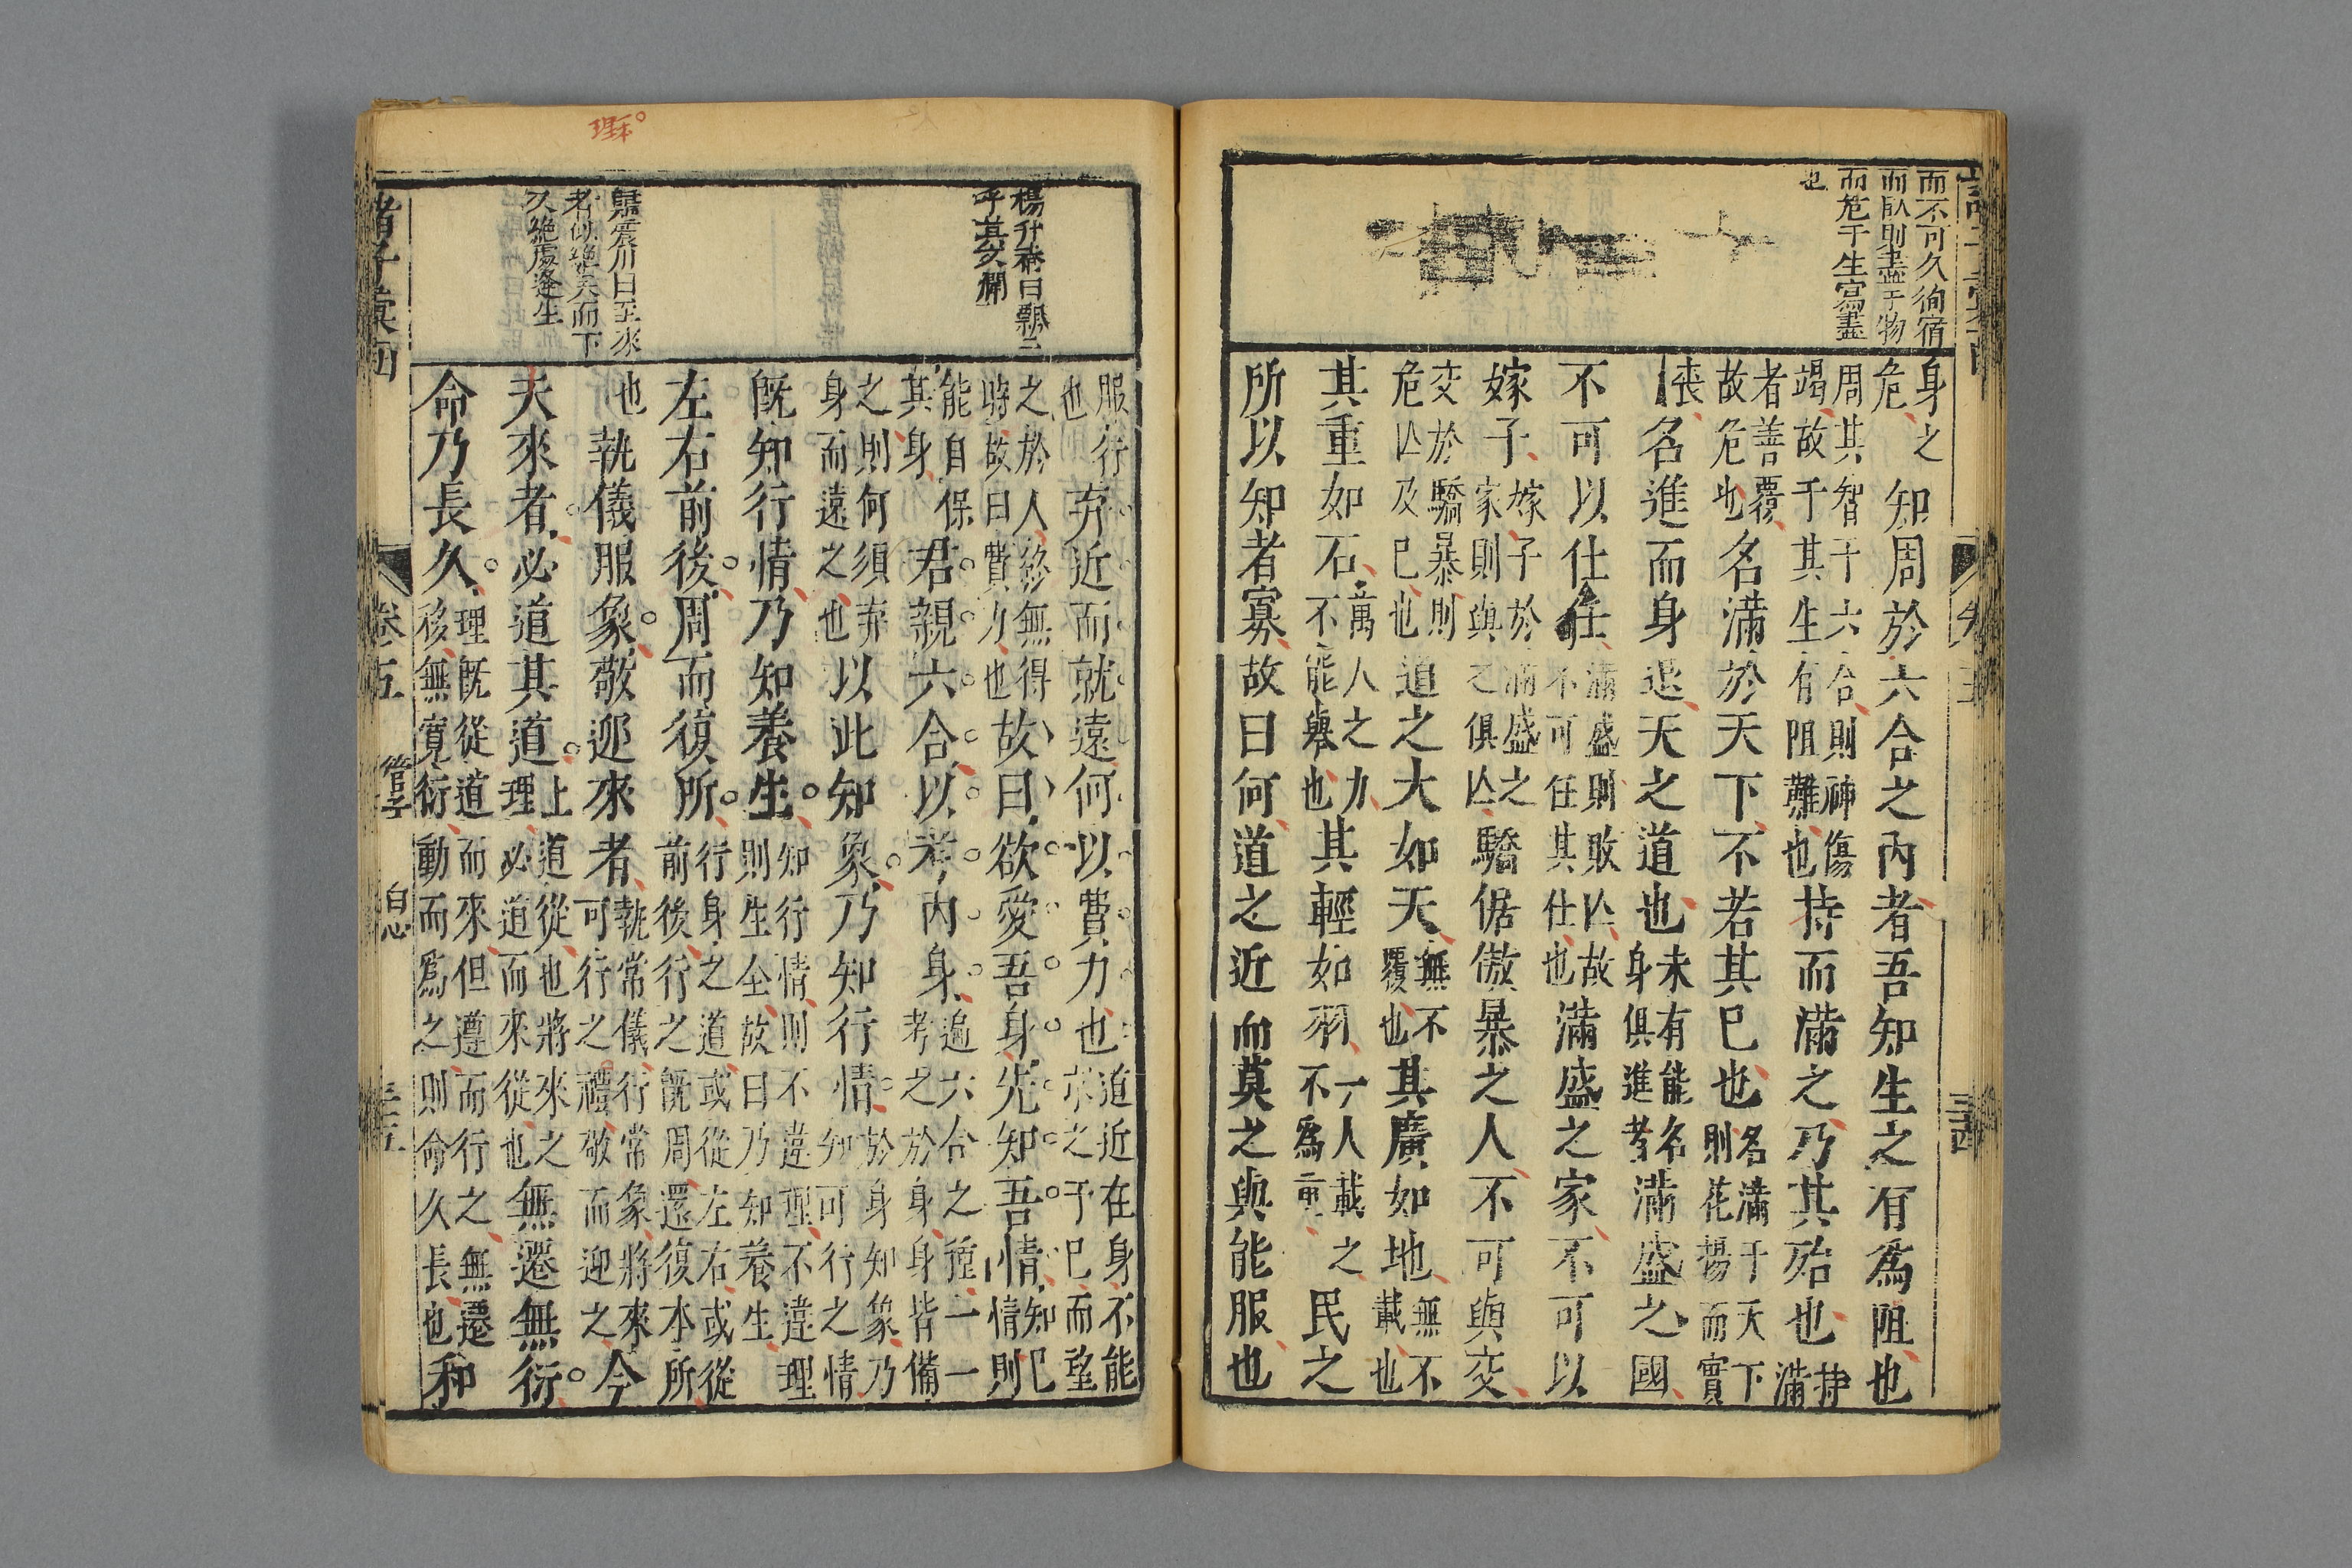 而不可久徇宿
而臥則盡于物
而危于生寫盡
也
身之
危
知周於六合之內者吾知生之有爲阻也
周其智于六合則神傷
竭故于其生有阻難也
持而滿之乃其殆也
持
滿
者善覆
故危也
名滿於天下不若其已也
名滿于天下
則花揚而實
喪
名進而身退天之道也
未有能名
身俱進者
滿盛之國
不可以仕仕
滿盛則敗亾故
不可任其仕也
滿盛之家不可以
嫁子
嫁子於滿盛之
家則與之俱亾
驕倨傲暴之人不可與交
交於驕暴則
危亾及已也
道之大如天
無不
覆也
其廣如地
無不
載也
其重如石
萬人之力
不能舉也
其輕如羽
一人載之
不爲重
民之
所以知者寡故曰何道之近而莫之與能服也
卷五
三四
楊升菴曰飄飄
乎其欠欄
歸震川曰至來
者似絕矣而下
又絕處逢生
理本
服行
也
弃近而就遠何以費力也
道近在身不能
求之于已而望
之於人終無得
時故曰費力也
故曰欲愛吾身先知吾情
知已
情則
能自保
其身
君親六合以考內身
遍六合之種一一
考之於身身皆備
之則何須弃
身而遠之也
以此知象乃知行情
於身知象乃
知可行之情
既知行情乃知養生
知行情則不違理不違理
則生全故曰乃知養生
左右前後周而復所
行身之道或從左右或從
前後行之既周還復本所
也
執儀服象敬迎來者
執常儀行常象將來
可行之禮敬而迎之
今
夫來者必道其道
上道從也將來之
理必道而來從也
無遷無衍
命乃長久
理既從道而來但遵而行之無遷
移無寬衍動而爲之則命久長也
和
諸子彙函
卷五
管子
白心
三五